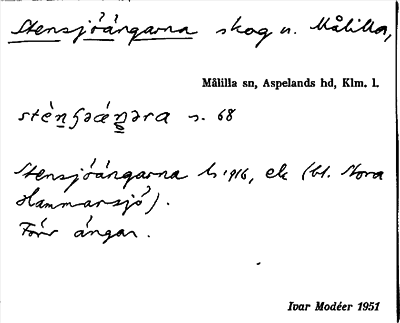 Stensjöängarna skog n. Målilla,
Målilla sn, Aspelands hd, Klm. l.
s. 68
Stensjöängarna h 1916, ek (bl. Stora
Hammarsjö).
Förr ängar.
Ivar Modéer 1951